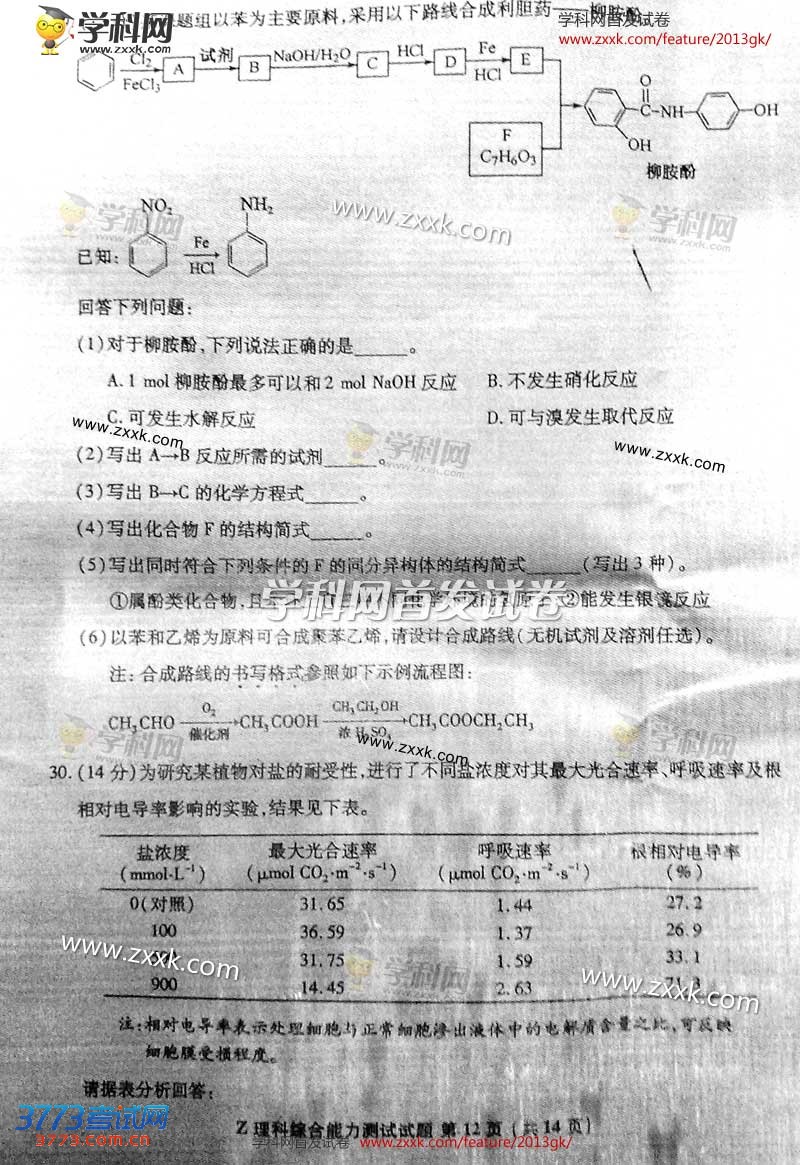 课题组以苯为主要原料,采用以下路线合成利胆药——柳胺酚
学科网首发试卷
www.zxxk.com/feature/2013gk/
学科网
www.zxxk.com
Cl₂
FeCl₃
A
试剂
B
NaOH/H₂O
C
HCl
D
Fe
HCl
E
F
C₇H₆O₃
O
C—NH
OH
OH
柳胺酚
学科网
www.zxxk.com
www.zxxk.com
学科网
www.zxxk.com
已知:
NO₂
Fe
HCl
NH₂
回答下列问题:
(1)对于柳胺酚,下列说法正确的是______。
A. 1 mol 柳胺酚最多可以和 2 mol NaOH 反应 B. 不发生硝化反应
C. 可发生水解反应 D. 可与溴发生取代反应
www.zxxk.com
学科网
www.zxxk.com
(2)写出 A→B 反应所需的试剂______。
(3)写出 B→C 的化学方程式______。
(4)写出化合物 F 的结构简式______。
(5)写出同时符合下列条件的 F 的同分异构体的结构简式______(写出 3 种)。
学科网首发试卷
①属酚类化合物,且 ②能发生银镜反应
(6)以苯和乙烯为原料可合成聚苯乙烯,请设计合成路线(无机试剂及溶剂任选)。
注:合成路线的书写格式参照如下示例流程图:
CH₃CHO O₂ 催化剂 → CH₃COOH CH₃CH₂OH 浓 H₂SO₄ → CH₃COOCH₂CH₃
学科网
www.zxxk.com
www.zxxk.com
30. (14 分)为研究某植物对盐的耐受性,进行了不同盐浓度对其最大光合速率、呼吸速率及根
相对电导率影响的实验,结果见下表。
盐浓度 最大光合速率 呼吸速率 根相对电导率
(mmol·L⁻¹) (μmol CO₂·m⁻²·s⁻¹) (μmol CO₂·m⁻²·s⁻¹) (%)
0(对照) 31.65 1.44 27.2
100 36.59 1.37 26.9
31.75 1.59 33.1
900 14.45 2.63
www.zxxk.com
学科网
www.zxxk.com
www.zxxk.com
注:相对电导率表示处理细胞与正常细胞渗出液体中的电解质含量之比,可反映
细胞膜受损程度。
请据表分析回答:
3773考试网
www.3773.com.cn
Z 理科综合能力测试试题 第 12 页 (共 14 页)
学科网首发试卷 www.zxxk.com/feature/2013gk/